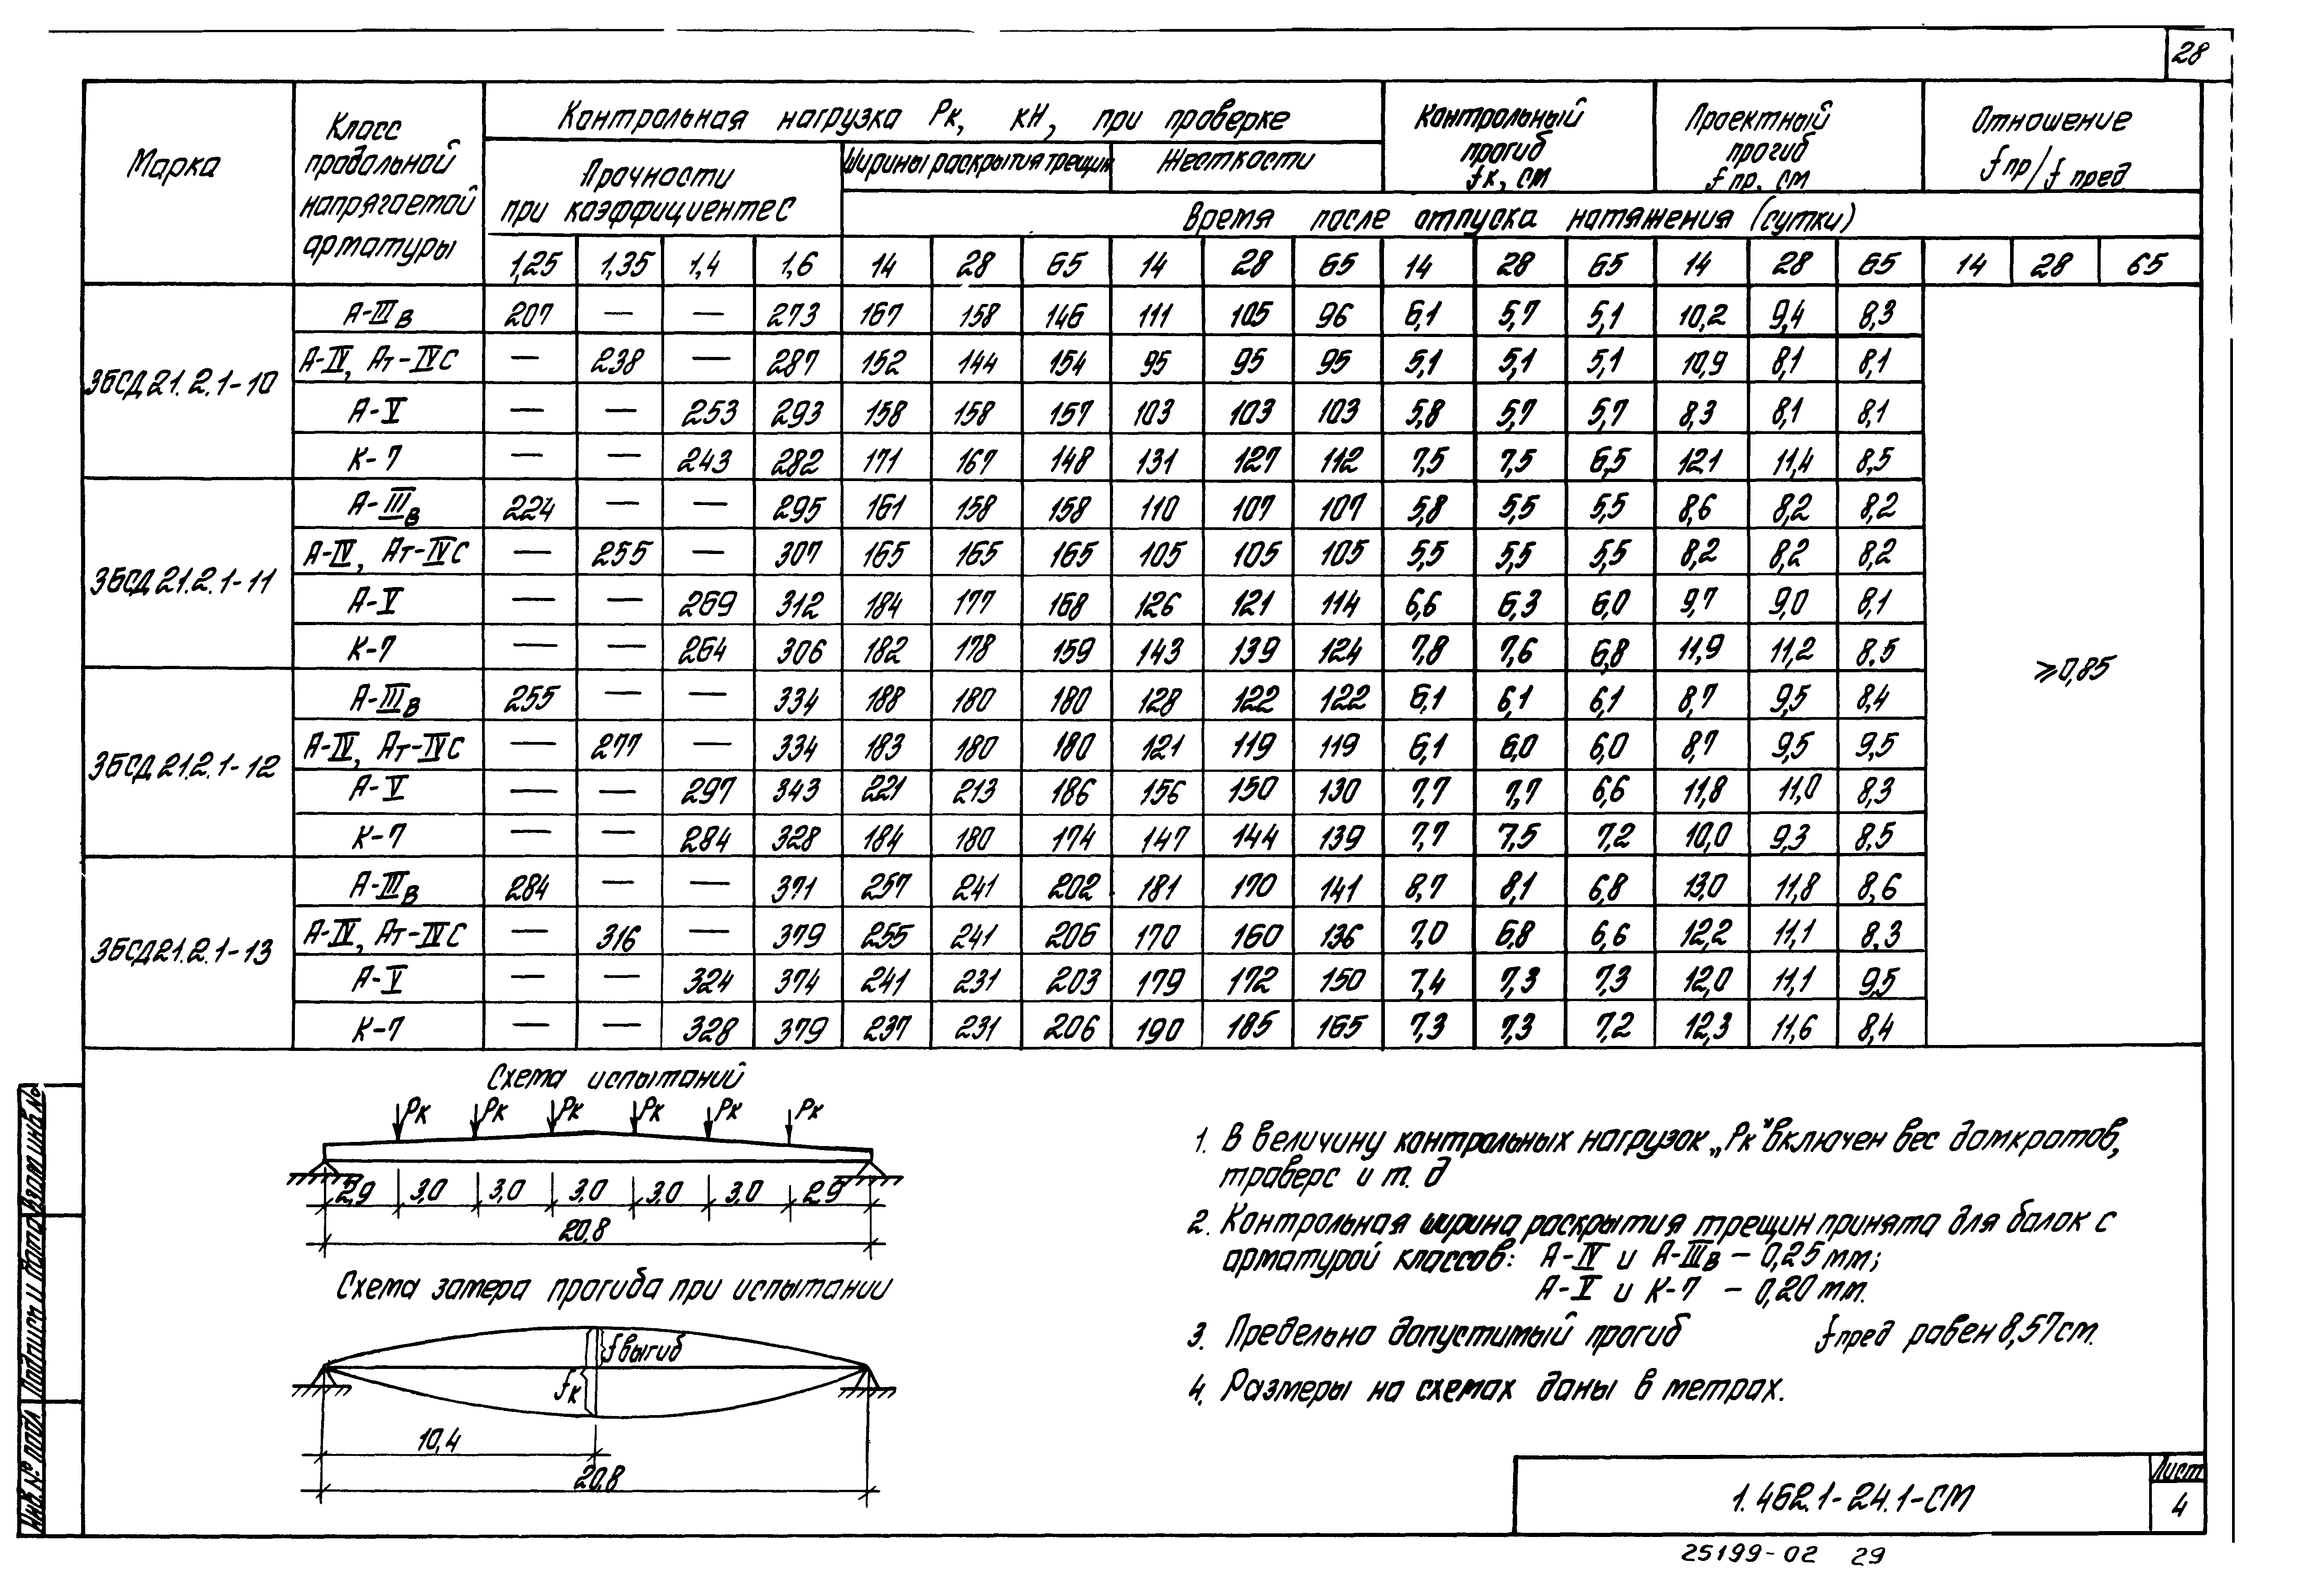 28
Марка
Класс продольной напрягаемой арматуры
Контрольная нагрузка Рк, кН, при проверке
Контрольный прогиб fк, см
Проектный прогиб f пр. см
Отношение f пр/f пред
Прочности при коэффициентес
Ширины раскрытия трещин
Жесткости
Время после отпуска натяжения (сутки)
1,25 1,35 1,4 1,6 14 28 65 14 28 65 14 28 65 14 28 65 14 28 65
3БСД21.2.1-10
А-IIIв 207 — — 273 167 158 146 111 105 96 6,1 5,7 5,1 10,2 9,4 8,3
А-IV, Ат-IVС — 238 — 287 152 144 154 95 95 95 5,1 5,1 5,1 10,9 8,1 8,1
А-V — — 253 293 158 158 157 103 103 103 5,8 5,7 5,7 8,3 8,1 8,1
К-7 — — 243 282 171 167 148 131 127 112 7,5 7,5 6,5 12,1 11,4 8,5
3БСД21.2.1-11
А-IIIв 224 — — 295 161 158 158 110 107 107 5,8 5,5 5,5 8,6 8,2 8,2
А-IV, Ат-IVС — 255 — 307 165 165 165 105 105 105 5,5 5,5 5,5 8,2 8,2 8,2
А-V — — 269 312 184 177 168 126 121 114 6,6 6,3 6,0 9,7 9,0 8,1
К-7 — — 264 306 182 178 159 143 139 124 7,8 7,6 6,8 11,9 11,2 8,5
≥0,85
3БСД21.2.1-12
А-IIIв 255 — — 334 188 180 180 128 122 122 6,1 6,1 6,1 8,7 9,5 8,4
А-IV, Ат-IVС — 277 — 334 183 180 180 121 119 119 6,1 6,0 6,0 8,7 9,5 9,5
А-V — — 297 343 221 213 186 156 150 130 7,7 7,7 6,6 11,8 11,0 8,3
К-7 — — 284 328 184 180 174 147 144 139 7,7 7,5 7,2 10,0 9,3 8,5
3БСД21.2.1-13
А-IIIв 284 — — 371 257 241 202 181 170 141 8,7 8,1 6,8 13,0 11,8 8,6
А-IV, Ат-IVС — 316 — 379 255 241 206 170 160 136 7,0 6,8 6,6 12,2 11,1 8,3
А-V — — 324 374 241 231 203 179 172 150 7,4 7,3 7,3 12,0 11,1 9,5
К-7 — — 328 379 237 231 206 190 185 165 7,3 7,3 7,2 12,3 11,6 8,4
Схема испытаний
Рк Рк Рк Рк Рк Рк
2,9 3,0 3,0 3,0 3,0 3,0 2,9
20,8
Схема замера прогиба при испытании
f выгиб
fк
10,4
20,8
1. В величину контрольных нагрузок „Рк" включен вес домкратов,
траверс и т. д
2. Контрольная ширина раскрытия трещин принята для балок с
арматурой классов: А-IV и А-IIIв – 0,25 мм;
А-V и К-7 – 0,20 мм.
3. Предельно допустимый прогиб f пред равен 8,57см.
4. Размеры на схемах даны в метрах.
Взам инв. №
Подпись и дата
Инв. № подл
1.462.1-24.1-СМ
Лист
4
25199-02 29